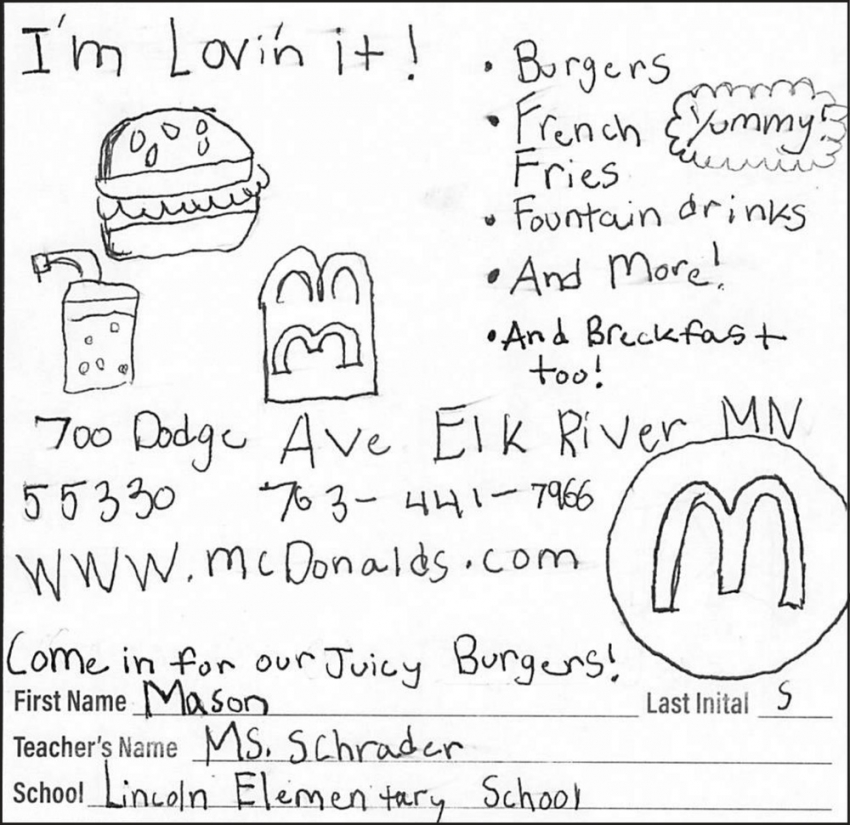 I'm Lovin it!
• Burgers
• French
Fries
Yummy!
• Fountain drinks
• And More!
• And Breckfast
too!
700 Dodge Ave Elk River MN
55330 763-441-7966
WWW.mcDonalds.com
Come in for our Juicy Burgers!
First Name Mason Last Inital S
Teacher's Name MS. Schrader
School Lincoln Elementary School